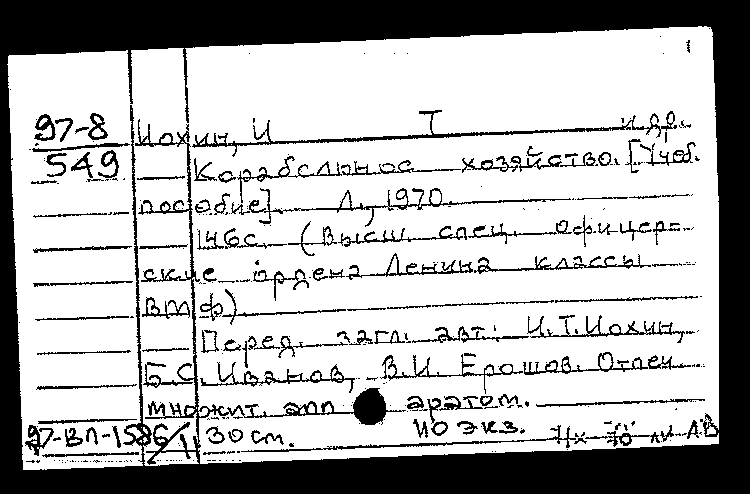 1
97-8 Иохин, И Т и др.
549 Корабельное хозяйство. [Учеб.
пособие]. Л., 1970.
146с. (Высш. спец. офицер-
ские ордена Ленина классы
ВМФ).
Перед. загл. авт.: И.Т.Иохин,
Б.С.Иванов, В.И. Ерошов. Отпеч.
множит. апп аратом.
97-ВЛ-1586/11 30 см. 110 экз.